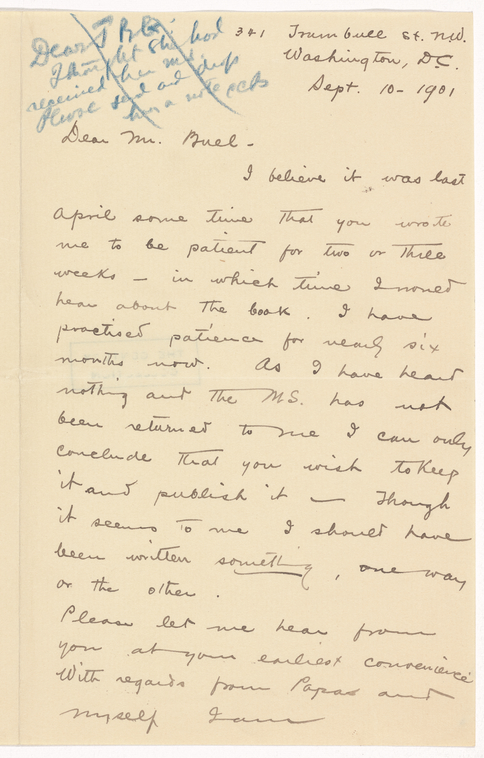 341 Trumbull St. N.W.
Washington, D.C.
Sept. 10 - 1901
Dear
I thought she had
received her MS.
Please send and drop
her a note
Dear Mr. Buel -
I believe it was last
April some time that you wrote
me to be patient for two or three
weeks - in which time I would
hear about the book. I have
practised patience for nearly six
months now. As I have heard
nothing and the MS. has not
been returned to me I can only
conclude that you wish to keep
it and publish it - Though
it seems to me I should have
been written something, one way
or the other.
Please let me hear from
you at your earliest convenience
With regards from Papa and
myself I am